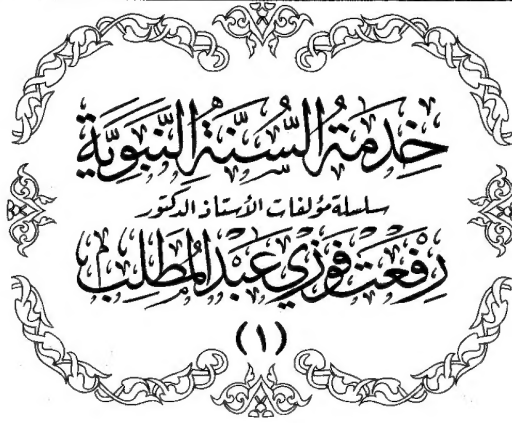 خِدْمَةُ السُّنَّةِ النَّبَوِيَّةِ
سلسلة مؤلفات الأستاذ الدكتور
رِفْعَت فَوْزِي عَبْدِ المُطَّلِب
(١)